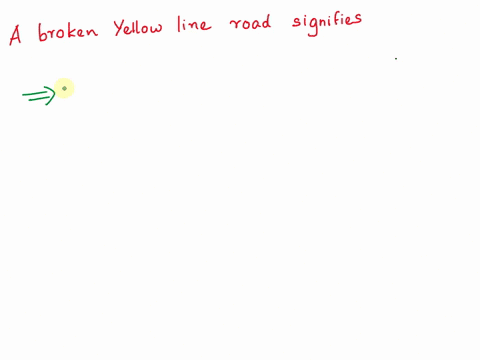 A broken Yellow line road signifies
⇒